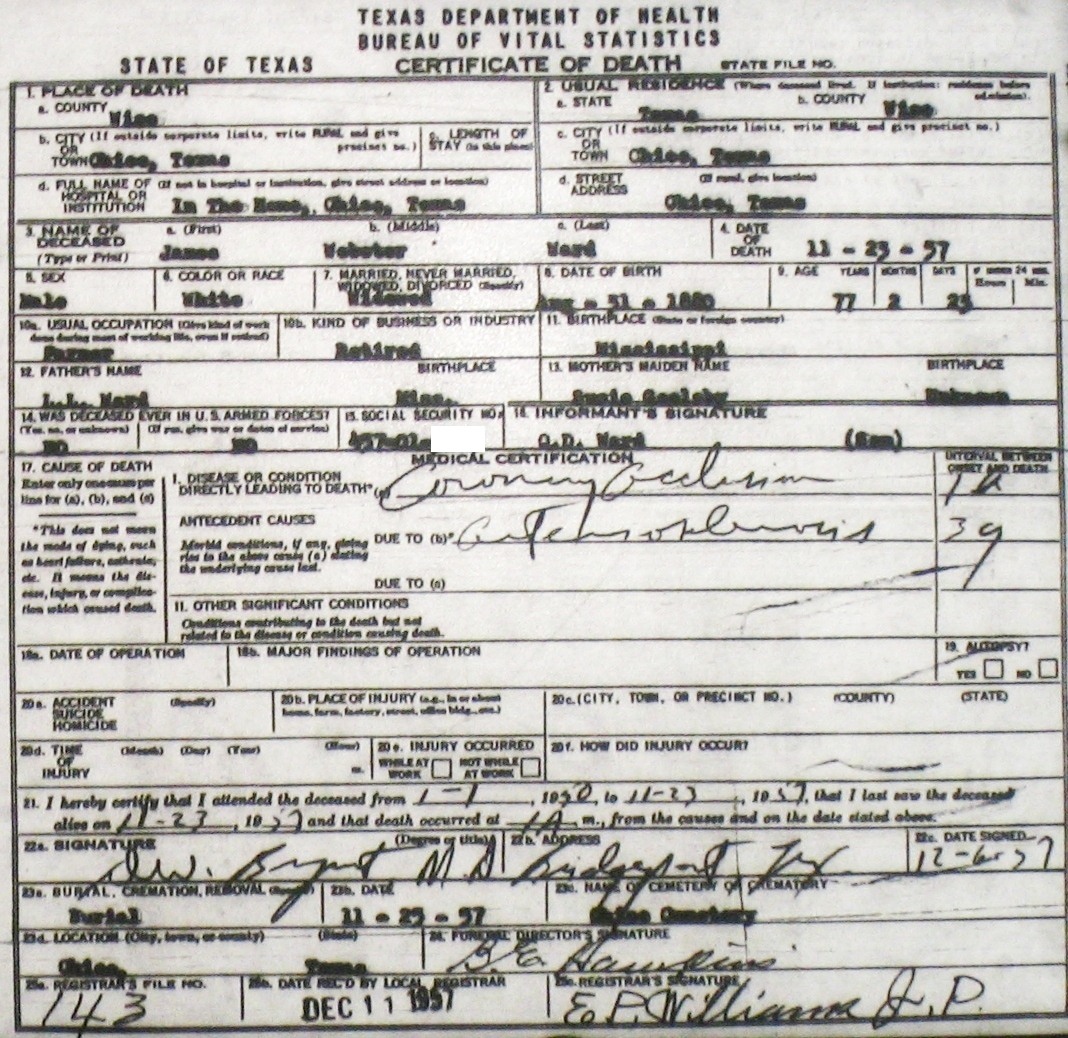 TEXAS DEPARTMENT OF HEALTH
BUREAU OF VITAL STATISTICS
STATE OF TEXAS CERTIFICATE OF DEATH STATE FILE NO.
1. PLACE OF DEATH
a. COUNTY Wise
2. USUAL RESIDENCE (Where deceased lived. If institution: residence before admission).
a. STATE Texas b. COUNTY Wise
b. CITY (If outside corporate limits, write RURAL and give precinct no.)
OR
TOWN Chico, Texas
c. LENGTH OF
STAY (In this place)
c. CITY (If outside corporate limits, write RURAL and give precinct no.)
OR
TOWN Chico, Texas
d. FULL NAME OF (If not in hospital or institution, give street address or location)
HOSPITAL OR
INSTITUTION In The Home, Chico, Texas
d. STREET (If rural, give location)
ADDRESS Chico, Texas
3. NAME OF a. (First) b. (Middle) c. (Last)
DECEASED
(Type or Print) James Webster Ward
4. DATE
OF
DEATH 11 - 23 - 57
5. SEX
Male
6. COLOR OR RACE
White
7. MARRIED, NEVER MARRIED,
WIDOWED, DIVORCED (Specify)
Widowed
8. DATE OF BIRTH
Aug - 31 - 1880
9. AGE YEARS MONTHS DAYS If under 24 hrs.
Hours Min.
77 2 23
10a. USUAL OCCUPATION (Give kind of work
done during most of working life, even if retired)
Farmer
10b. KIND OF BUSINESS OR INDUSTRY
Retired
11. BIRTHPLACE (State or foreign country)
Mississippi
12. FATHER'S NAME BIRTHPLACE
L.L. Ward Miss.
13. MOTHER'S MAIDEN NAME BIRTHPLACE
Susie Unknown
14. WAS DECEASED EVER IN U.S. ARMED FORCES?
(Yes, no, or unknown) (If yes, give war or dates of service)
NO NO
15. SOCIAL SECURITY NO.
457-01
16. INFORMANT'S SIGNATURE
O.D. Ward (Son)
MEDICAL CERTIFICATION
17. CAUSE OF DEATH
Enter only one cause per
line for (a), (b), and (c)
*This does not mean
the mode of dying, such
as heart failure, asthenia,
etc. It means the dis-
ease, injury, or complica-
tion which caused death.
I. DISEASE OR CONDITION
DIRECTLY LEADING TO DEATH* (a) Coronary Occlusion
INTERVAL BETWEEN
ONSET AND DEATH
ANTECEDENT CAUSES
Morbid conditions, if any, giving
rise to the above cause (a) stating
the underlying cause last.
DUE TO (b) Arteriosclerosis
3 y
DUE TO (c)
II. OTHER SIGNIFICANT CONDITIONS
Conditions contributing to the death but not
related to the disease or condition causing death.
18a. DATE OF OPERATION
18b. MAJOR FINDINGS OF OPERATION
19. AUTOPSY?
YES NO
20a. ACCIDENT (Specify)
SUICIDE
HOMICIDE
20b. PLACE OF INJURY (e.g., in or about
home, farm, factory, street, office bldg., etc.)
20c. (CITY, TOWN, OR PRECINCT NO.) (COUNTY) (STATE)
20d. TIME (Month) (Day) (Year) (Hour)
OF
INJURY m.
20e. INJURY OCCURRED
WHILE AT
WORK
NOT WHILE
AT WORK
20f. HOW DID INJURY OCCUR?
21. I hereby certify that I attended the deceased from 1-1, 1950, to 11-23, 1957, that I last saw the deceased
alive on 11-23, 1957 and that death occurred at 1A m., from the causes and on the date stated above.
22a. SIGNATURE (Degree or title)
D.W. Bryant M.D.
22b. ADDRESS
Bridgeport Tex
22c. DATE SIGNED
12-6-57
23a. BURIAL, CREMATION, REMOVAL (Specify)
Burial
23b. DATE
11 - 25 - 57
23c. NAME OF CEMETERY OR CREMATORY
Chico Cemetery
23d. LOCATION (City, town, or county) (State)
Chico, Texas
24. FUNERAL DIRECTOR'S SIGNATURE
Hawkins
25a. REGISTRAR'S FILE NO.
143
25b. DATE REC'D BY LOCAL REGISTRAR
DEC 11 1957
25c. REGISTRAR'S SIGNATURE
E.P. Williams J.P.